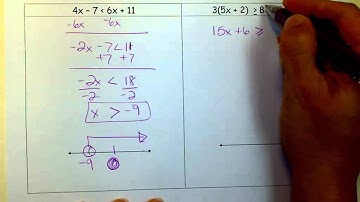 4x - 7 < 6x + 11
-6x -6x
-2x - 7 < 11
+7 +7
-2x < 18
-2 -2
x > -9
-9 0
3(5x + 2) ≥ 8
15x + 6 ≥